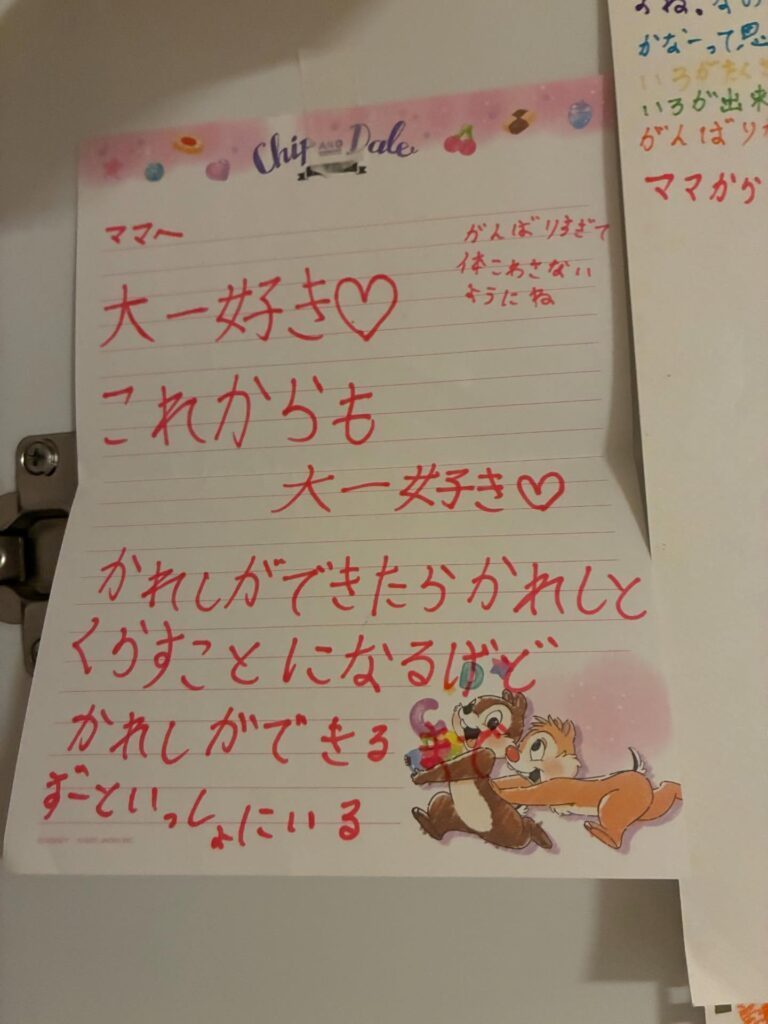 Chip AND Dale
ママへ
がんばりすぎて
体こわさない
ようにね
大一好き♡
これからも
大一好き♡
かれしができたらかれしと
くらすことになるけど
かれしができるまで
ずーといっしょにいる
よね。
かなーって思
いろがたくさ
いろが出来
がんばりや
ママから